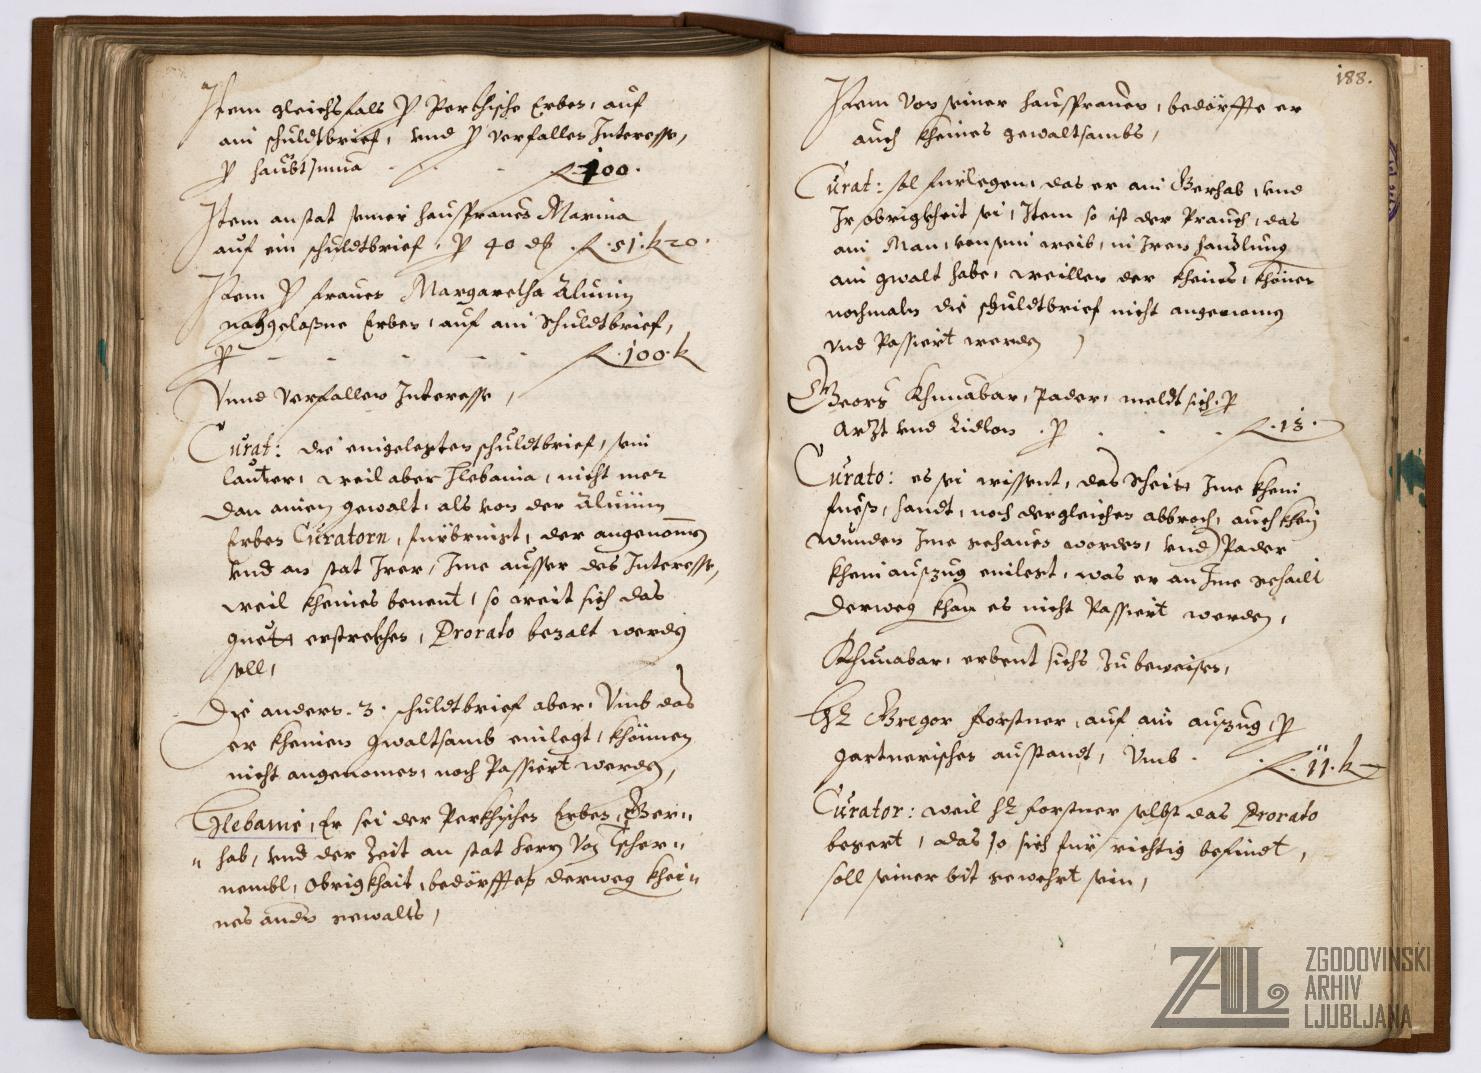 Item gleichsfals P Perkhische Erben, auf
ain schuldtbrief, vnd P verfallen Interesse,
P haubtsuma . f. 100.
Item anstat seiner hausfrauen Marina
auf ein schuldtbrief, P 40 d . f. 51. k 20.
Item P frauen Margaretha
nachgelaßne Erben, auf ain Schuldtbrief,
P - - - - f. 100. k
Vnnd verfallen Interesse,
Curat: die eingelegten schuldtbrief, sein
lautter, weil aber Glebania, nicht mer
dan ainen gewalt, als von der
Erben Curatorn, fürbringt, der angenomen
vnd an stat Irer, Ime ausser des Interesse,
weil kheines benent, so weit sich das
guett erstrekhen, Prorato bezalt werden
soll,
Die andern. 3. schuldtbrief aber, Vmb das
er kheinen gwaltsamb einlegt, khönnen
nicht angenomen, noch Passiert werden,
Glebanie, Er sei der Perkhischen Erben, Ger„
„ hab, vnd der Zeit an stat herrn Von Tscher„
nembl, Obrigkhait, bedörfftes derweg khei„
nes andern gewalts,
188.
Item von seiner hausfrauen, bedörffte er
auch kheines gewaltsambs,
Curat: sol fürlegen, das er ain Gerhab, vnd
Ir obrigkheit sei, Item so ist der Prauch, das
ain Man, von sein weib, in Iren handlung
ain gwalt habe, weillen der kheins, khönen
nochmaln die schuldtbrief nicht angenomen
vnd Passiert werden,
Georg Khunabar, Pader, meldt sich, P
Arzt vnd Lidlon . P . . . f. 13.
Curato: es sei wissent, das Scheitt Ime khein
fueß, handt, noch dergleichen abbroch, auch khein
wunden Ime gehauen worden, vnd Pader
khein auszug einlegt, was er an Ime gehailt
Derweg khan es nicht Passiert werden,
Khunabar, erbeut sichs zu beweisen,
Hr Gregor Forstner, auf ain auszug, P
gartnerischen ausstandt, Vmb . . f. 11. k
Curator: weil hr forstner selbst das Prorato
begert, das so sich für richtig befindt,
soll seiner bit gewehrt sein,
ZAL
ZGODOVINSKI
ARHIV
LJUBLJANA